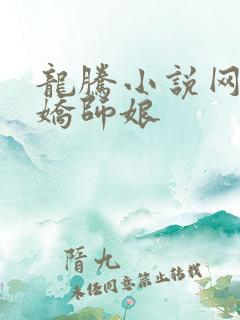 龍騰小説网
嬌師娘
隋九
未经同意禁止转载